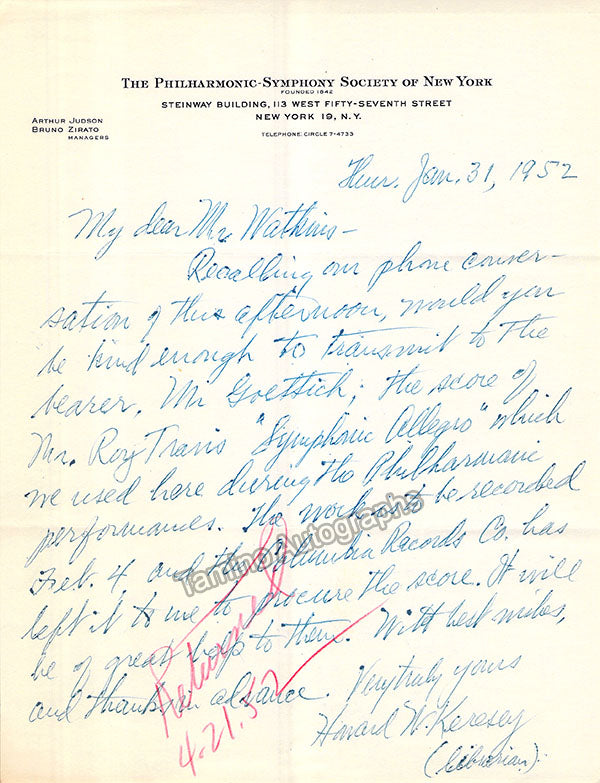 THE PHILHARMONIC-SYMPHONY SOCIETY OF NEW YORK
FOUNDED 1842
STEINWAY BUILDING, 113 WEST FIFTY-SEVENTH STREET
NEW YORK 19, N.Y.
ARTHUR JUDSON
BRUNO ZIRATO
MANAGERS
TELEPHONE: CIRCLE 7-4733
Thur. Jan. 31, 1952
My dear Mr. Watkins -
Recalling our phone conver-
sation of this afternoon, would you
be kind enough to transmit to the
bearer, Mr Goettich; the score of
Mr. Roy Travis "Symphonic Allegro" which
we used here during the Philharmonic
performances. The work is to be recorded
Feb. 4 and the Columbia Records Co. has
left it to me to procure the score. It will
be of great help to them. With best wishes,
and thanks in advance. Very truly yours
Howard N. Keresey
(librarian).
Returned
4.21.52
Tamino Autographs